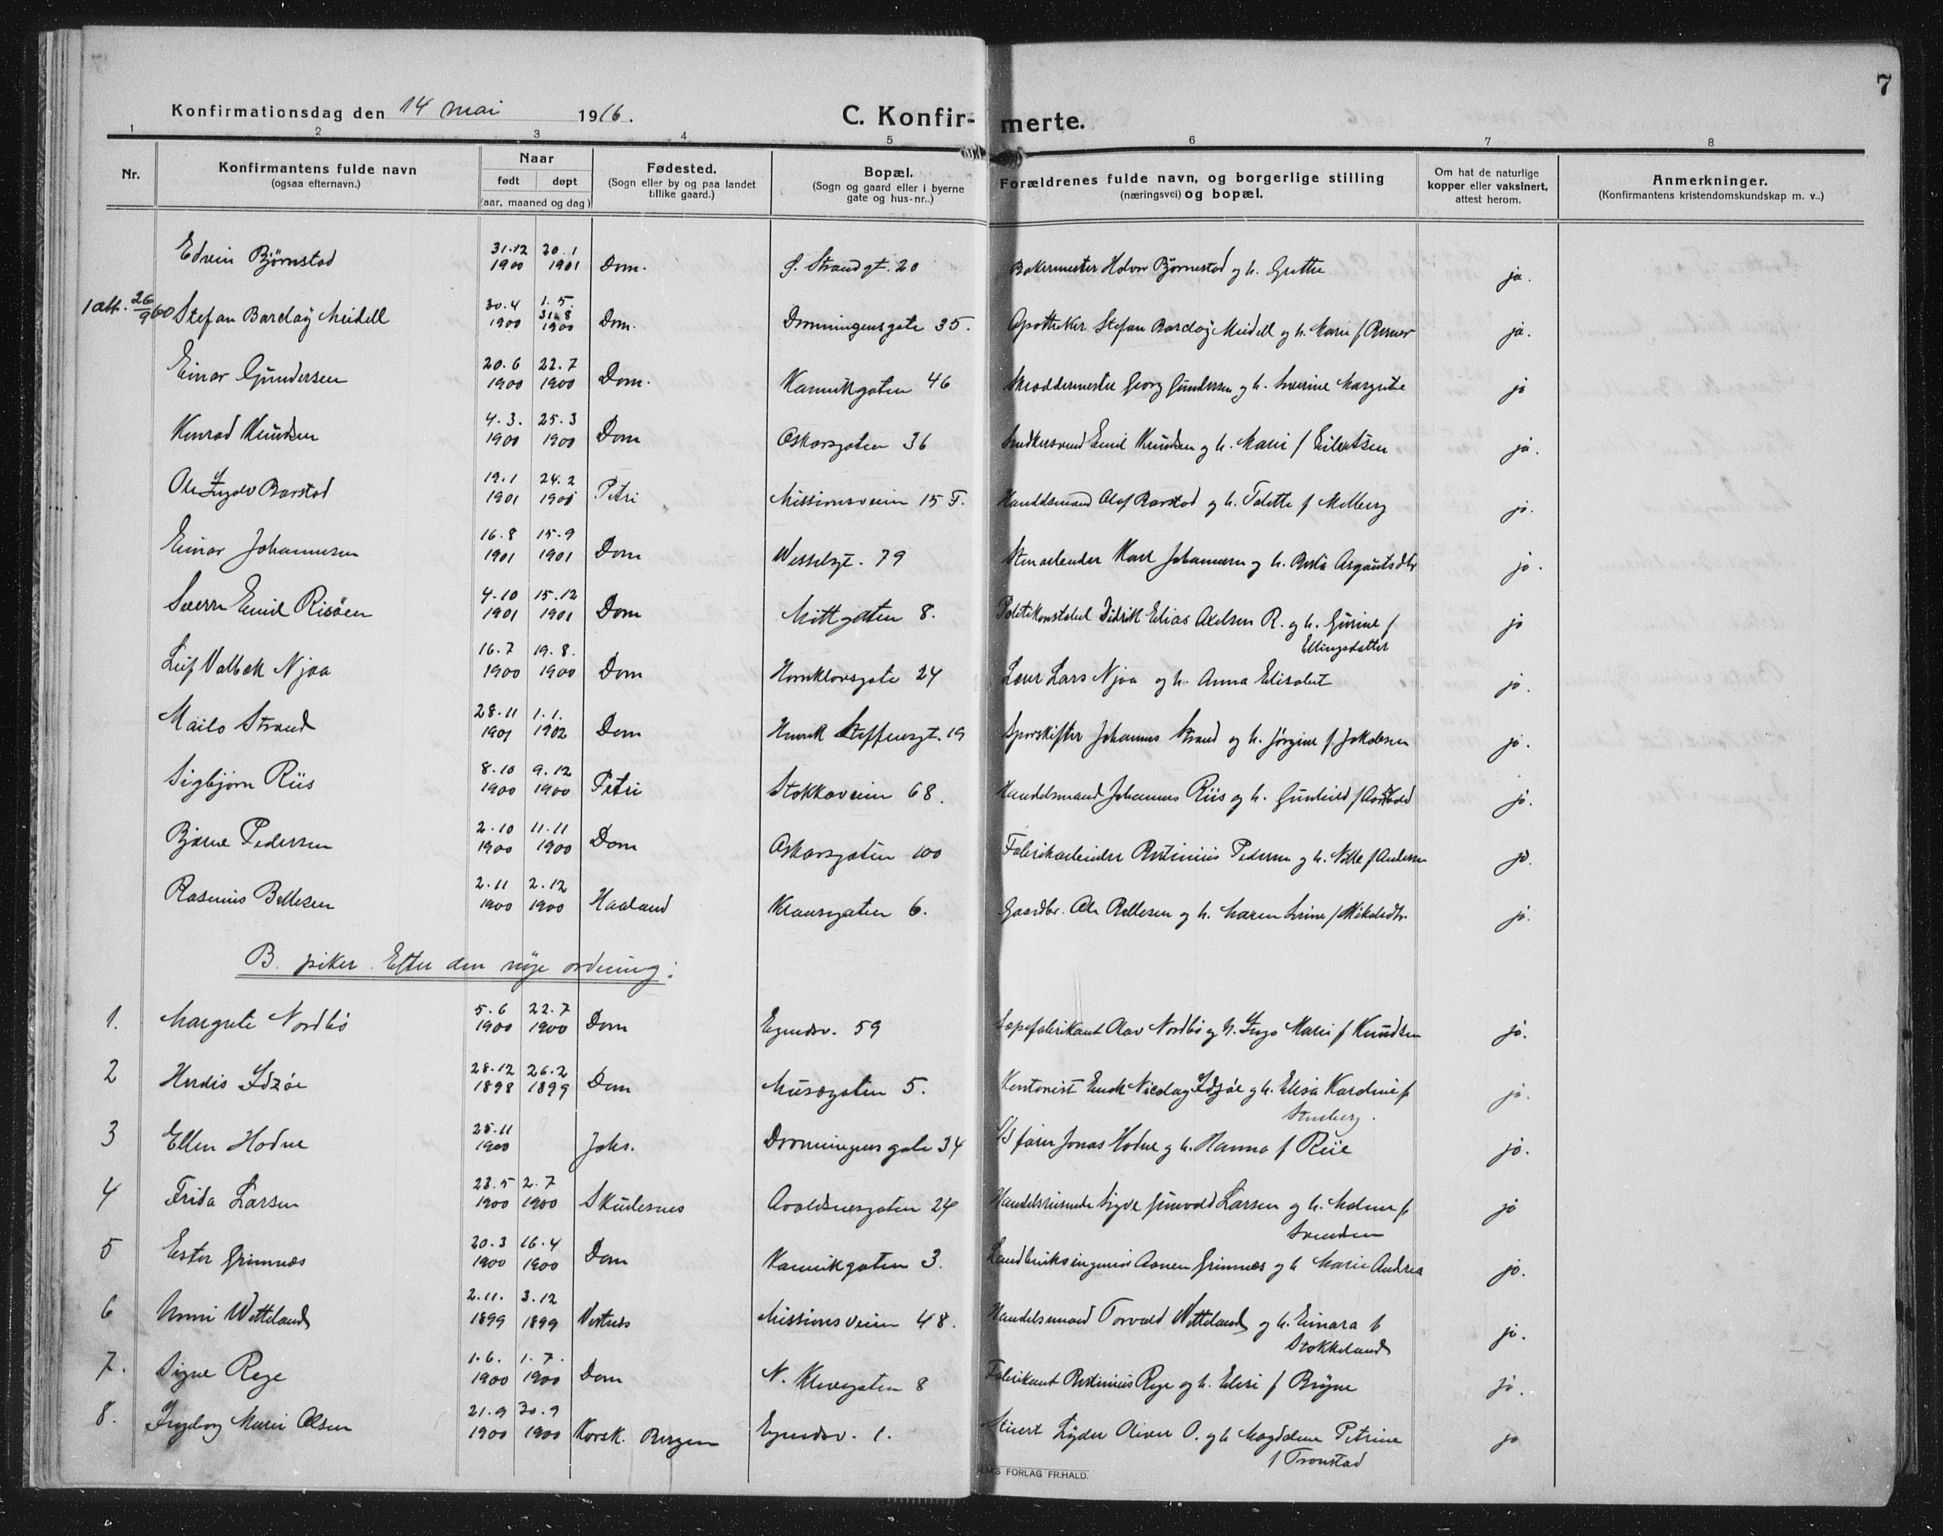 7
Konfirmationsdag den 14 mai 1916.
C. Konfirmerte.
1 2 3 4 5 6 7 8
Nr.
Konfirmantens fulde navn
(ogsaa efternavn.)
Naar
født døpt
(aar, maaned og dag)
Fødested.
(Sogn eller by og paa landet
tillike gaard.)
Bopæl.
(Sogn og gaard eller i byerne
gate og hus-nr..)
Forældrenes fulde navn, og borgerlige stilling
(næringsvei) og bopæl.
Om hat de naturlige
kopper eller vaksinert,
attest herom.
Anmerkninger.
(Konfirmantens kristendomskundskap m. v..)
Edvin Bjørnstad 31.12 1900 20.1 1901 Dom. Ø. Strandgt. 20 Bakermester Halvor Bjørnestad og h. Grethe ja.
1 att. 26/9 60 Stefan Barclay Meidell 30.4 1900 1.5. 31.8 1900 Dom. Dronningensgate 35. Apotheker Stefan Barclay Meidell og h. Marie f. Berner ja.
Einar Gundersen 20.6 1900 22.7 1900 Dom. Kannikgaten 46 Skreddermester Georg Gundersen og h. Severine Margrete ja
Konrad Knudsen 4.3. 1900 25.3 1900 Dom Oskarsgaten 36 Snekkersvend Emil Knudsen og h. Marie f Eilertsen ja.
Ole Ingolv Barstad 19.1 1901 24.2 1901 Petri Missionsveien 15 F. Handelsmand Olaf Barstad og h. Talette f Melberg ja.
Einar Johannesen 16.8 1901 15.9 1901 Dom Wesselsgt. 79 Stenarbeider Karl Johannesen og h. Berta Asgautsdtr ja.
Sverre Emil Risøen 4.10 1901 15.12 1901 Dom Midtgaten 8. Politikonstabel Didrik Elias Axelsen R. og h. Gurine f ja
Ellingsdatter
Leif Valbek Njaa 16.7 1900 19.8. 1900 Dom Hornklovsgate 24 Lærer Lars Njaa og h. Anna Elisabet ja.
Mailo Strand 28.11 1901 1.1. 1902 Dom Henrik Steffensgt. 19 Sporskifter Johannes Strand og h. Jørgine f Jakobsen ja.
Sigbjørn Riis 8.10 1900 9.12 1900 Petri Stokkaveien 68. Handelsmand Johannes Riis og h. Gunhild f ja.
Bjarne Pedersen 2.10 1900 11.11 1900 Dom Oskarsgaten 100 Fabrikarbeider Bertinius Pedersen og h. Nille f Andersen ja.
Rasmus Bellesen 2.11 1900 2.12 1900 Haaland Klausegaten 6. Gaardbr. Ole Bellesen og h. Maren Serine f Mikalsdtr. ja.
B. piker. Efter den nye ordning:
1. Margrete Nordbø 5.6 1900 22.7 1900 Dom Egnedsv. 59 Sæpefabrikant Olav Nordbø og h. Inga Marie f Knudsen ja.
2 Herdis Idzøe 28.12 1898 26.2 1899 Dom Musægaten 5. Kontorist Enok Nicolay Idzøe og h. Elisa Kardine f ja.
Stenberg.
3 Ellen Hodne 25.11 1900 Joks. Dronningens gate 34 S/S fører Jonas Hodne og h. Hanna f Riie ja.
4 Frida Larsen 23.5 1900 2.7 1900 Skudesnes Avaldsnesgaten 24 Handelsreisende Sigv. Gunvald Larsen og h. Malene f ja
Svendsen
5 Ester Grimnæs 20.3 1900 16.4 1900 Dom Kannikgaten 3. Landbruksingeniør Aanen Grimnæs og h Marie Andrea ja.
6 Unni Wetteland 2.11. 1899 3.12 1899 Vestnes Missionsveien 48. Handelsmand Torvald Wetteland og h. Einara f ja.
Stokkeland
7. Signe Rege 1.6. 1900 1.7. 1900 Dom N. Klevegaten 8 Fabrikant Bertinius Rege og h. Elisi f Bryne ja.
8. Ingeborg Marie Olsen 21.9 1900 30.9 1900 Korsk. Bergen Egnedsv. 1. Lyder Oliver O. og h. Magdalene Petrine ja
f Tronstad
FORLAG FR.HALD.